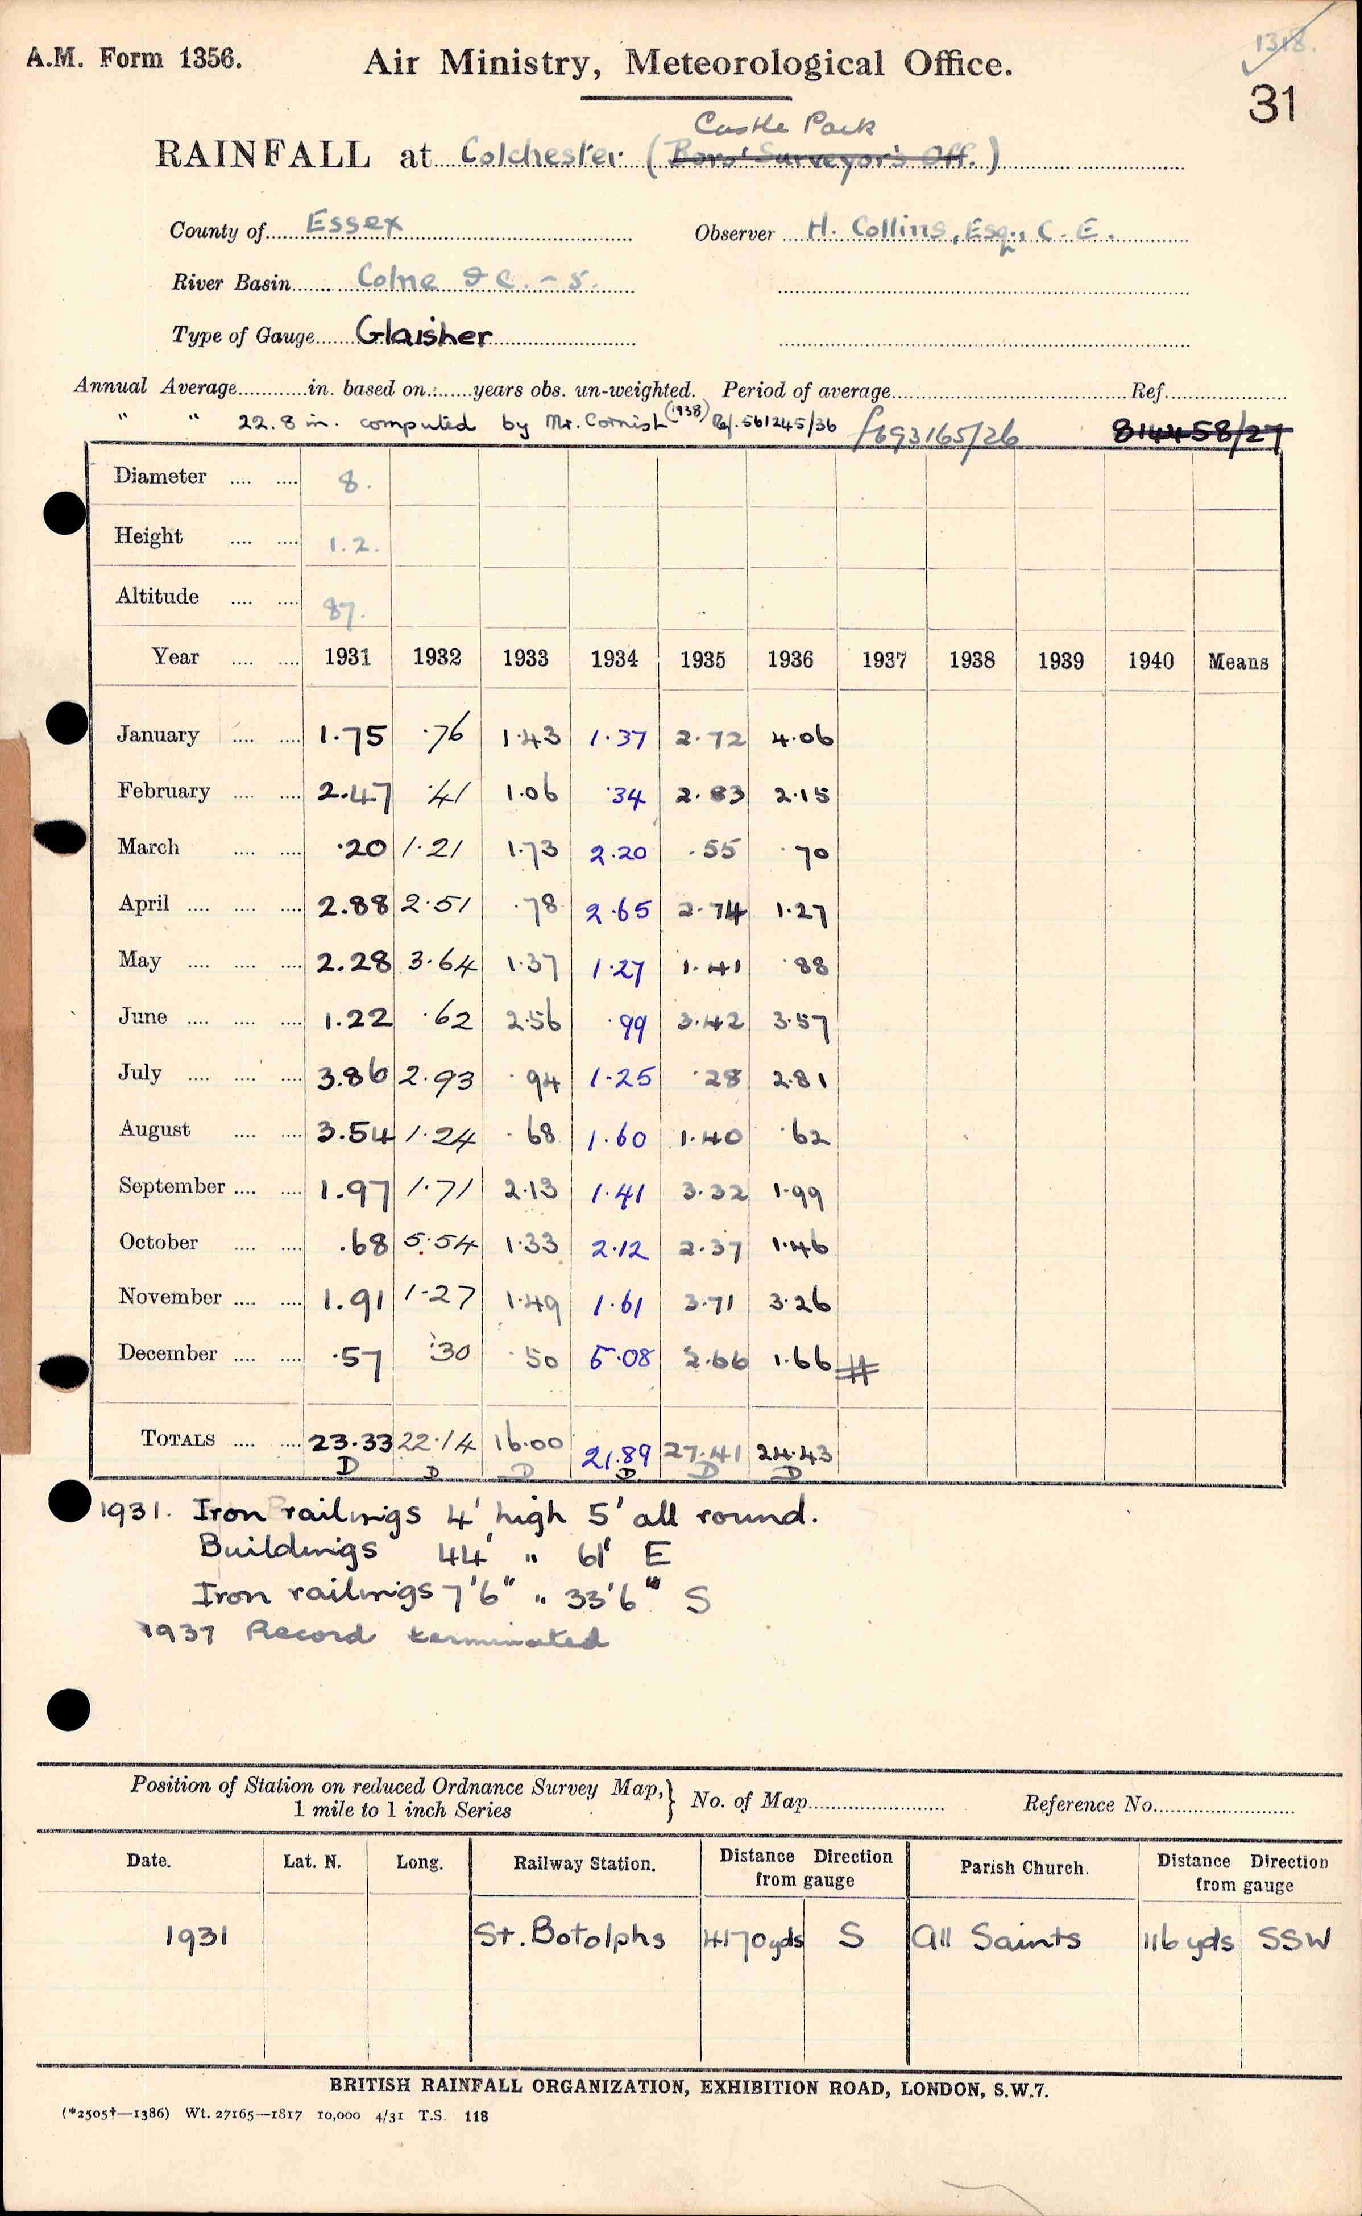 1318.
A.M. Form 1356. Air Ministry, Meteorological Office.
31
Castle Park
RAINFALL at Colchester (Boro' Surveyor's Off.)
County of Essex Observer H. Collins, Esq., C.E.
River Basin Colne &c. - 5.
Type of Gauge Glaisher
Annual Average in. based on years obs. un-weighted. Period of average Ref.
" " 22.8 in. computed by Mr. Cornish (1938) 561245/36 693165/26 814458/27
Diameter 8.
Height 1.2.
Altitude 87.
Year 1931 1932 1933 1934 1935 1936 1937 1938 1939 1940 Means
January 1.75 .76 1.43 1.37 2.72 4.06
February 2.47 .41 1.06 .34 2.83 2.15
March .20 1.21 1.73 2.20 .55 .70
April 2.88 2.51 .78 2.65 2.74 1.27
May 2.28 3.64 1.37 1.27 1.41 .88
June 1.22 .62 2.56 .99 3.42 3.57
July 3.86 2.93 .94 1.25 .28 2.81
August 3.54 1.24 .68 1.60 1.40 .62
September 1.97 1.71 2.13 1.41 3.32 1.99
October .68 5.54 1.33 2.12 2.37 1.46
November 1.91 1.27 1.49 1.61 3.71 3.26
December .57 .30 .50 5.08 2.66 1.66 #
TOTALS 23.33 22.14 16.00 21.89 27.41 24.43
D D D D D D
1931. Iron railings 4' high 5' all round.
Buildings 44' " 61' E
Iron railings 7'6" " 33'6" S
1937 Record terminated
Position of Station on reduced Ordnance Survey Map, } No. of Map Reference No.
1 mile to 1 inch Series
Date. Lat. N. Long. Railway Station. Distance Direction from gauge Parish Church. Distance Direction from gauge
1931 St. Botolphs 470 yds S All Saints 116 yds SSW
BRITISH RAINFALL ORGANIZATION, EXHIBITION ROAD, LONDON, S.W.7.
(*2505†—1386) Wt. 27165—1817 10,000 4/31 T.S. 118